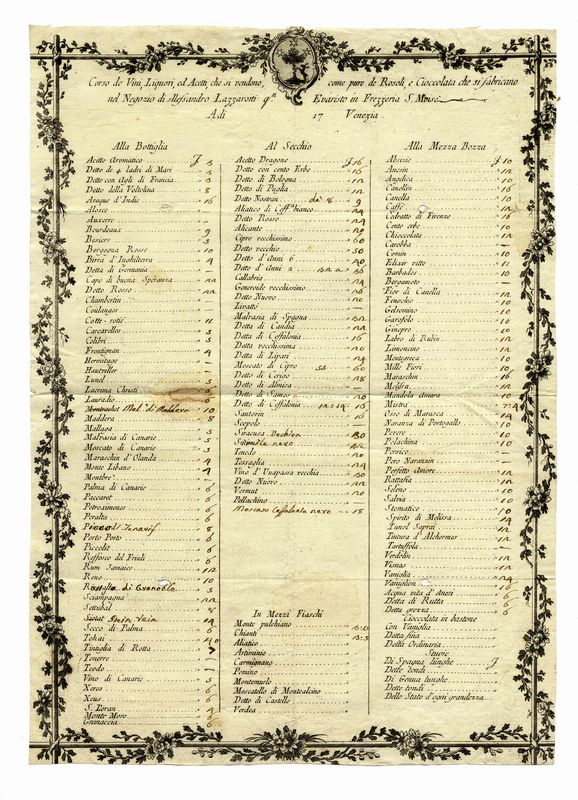 Corso de Vini, Liquori, ed Aceti, che si vendono, come pure de Rosoli, e Cioccolata che si fabricano
nel Negozio di Alessandro Lazzaroni q.m Evaristo in Frezzeria S. Moisè
Adi 17 Venezia.
Alla Bottiglia
Aceto Aromatico 3
Detto de 4 ladri di Mari 3
Detto con Agli di Francia 3
Detto della Voltolina 8
Araque d'Indie 16
Alosce
Auxerro
Bourdeaux 9
Besiers 5
Borgogna Rosso 10
Birra d'Inghilterra 4
Detta di Germania
Capo di buona Speranza 22
Detto Rosso 22
Chambertin
Coulanges
Cotte-rotie 11
Carcavollos 5
Colibri 5
Frontignan 4
Hermitage
Hautviller
Lunel 5
Lacrima Christi 6
Lauradio 6
Mal. di Maldero 10
Maddera 8
Mallaga 5
Malvasia di Canarie 5
Moscato di Canarie 5
Maraschin d'Olanda 4
Monte Libano 7
Montbre
Palma di Canarie 6
Paccaret 6
Petroximenes 6
Peralta 6
8
Porto Porto 6
Piccolit 6
Reffosco del Friuli 6
Rum Jamaico 12
Reno 10
di Grenoble
Sciampagna 12
Settubal 8
14
Secco di Palma 6
Tokai 110
Tintiglia di Rotta 7
Tonerre
Teodo
Vino di Canarie 5
Xeres 6
Xeus 6
S. Loran 4
Monte Moro 6
Granaccia 6
Al Secchio
Aceto Dragone 16
Detto con cento Erbe 16
Detto di Bologna 12
Detto di Puglia 12
Detto Nostran da 8 9
Aliatico di Coff.e bianco 24
Detto Rosso 24
Alicante 20
Cipro vecchissimo 60
Detto vecchio 50
Detto d'Anni 6 20
Detto d'Anni 2
Callabria 24
Generoso vecchissimo 24
Detto Nuovo 20
Livatto
Malvasia di Spagna 32
Detta di Candia 24
Detta di Ceffalonia 16
Detta vecchissima 20
Detta di Lipari 24
Moscato di Cipro 55 60
Detto di Cerigo 18
Detto di Almisa
Detto di Samos 20
Detto di Ceffalonia 12 a 14 16
Santorin 16
Scopolo
Siracusa Vechia 30
30
Tenedo 20
Tessaglia 24
Vino d'Uvapassa vecchia 30
Detto Nuovo 22
Vermut 20
Pellachino
Moscato Ceffalonia nero 18
In Mezzi Fiaschi
Monte pulchiano
Chianti
Aliatico
Artiminio
Carmignano
Pomino
Montemurlo
Moscatello di Montealcino
Detto di Castello
Verdea
Alla Mezza Bozza
Absizio 10
Anesin 12
Angelica 10
Canelin 16
Canella 10
Caffè 12
Cedratto di Firenze 16
Cento erbe 10
Chioccolata 12
Carobba
Comin 10
Elixir vitte 11
Barbades 10
Bergamoto
Fior di Canella 12
Fenochio 10
Gelsomino 10
Garofolo 10
Ginepro 10
Labro di Rubin 12
Limoncino 12
Montegreca 10
Mille Fiori 10
Maraschin 16
Melissa 12
Mandola Amara 10
Mistra
Osso di Marasca 14
Naranza di Portogallo 10
Perere 10
Polachina 10
Persico
Pero Naranzin
Perfetto Amore 12
Rattafia 12
Seleno 10
Salvia 10
Stomatico 10
Spirito di Melissa 14
Tunol Saprai 12
Tintura d'Alchermes 12
Tartuffola
Verdolin 12
Visnas 12
Vaniglia 24
Vaniglion 16
Acqua vita d'Anesi 6
Detta di Rutta 6
Detta grezza 6
Cioccolata in bastone
Con Vaniglia
Detta fina
Detta Ordinaria
Stuoie
Di Spagna lunghe
Dette tondi
Di Genua lunghe
Dette tondi
Dello Stato d'ogni grandezza